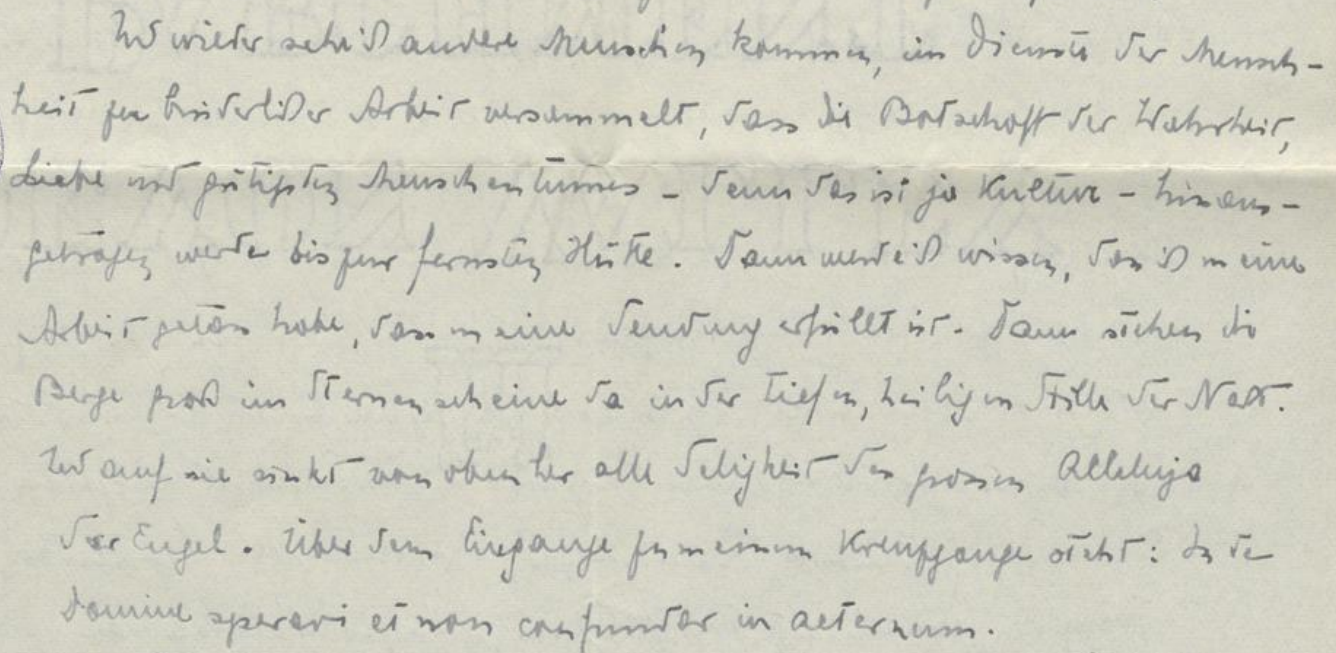 Und wieder seh ich andere Menschen kommen, im Dienste der Mensch-
heit zu brüderlicher Arbeit versammelt, dass die Botschaft der Wahrheit,
Liebe und gütigsten Menschentumes - denn das ist ja Kultur - hinaus-
getragen werde bis zur fernsten Hütte. Dann werde ich wissen, dass ich meine
Arbeit getan habe, dass meine Sendung erfüllt ist. Dann stehen die
Berge gross im Sternenscheine da in der tiefen, heiligen Stille der Nacht.
Und auf sie sinkt von oben her alle Seligkeit des grossen Alleluja
der Engel. Über dem Eingange zu meinem Kreuzgange steht: In te
Domine speravi et non confundar in aeternum.